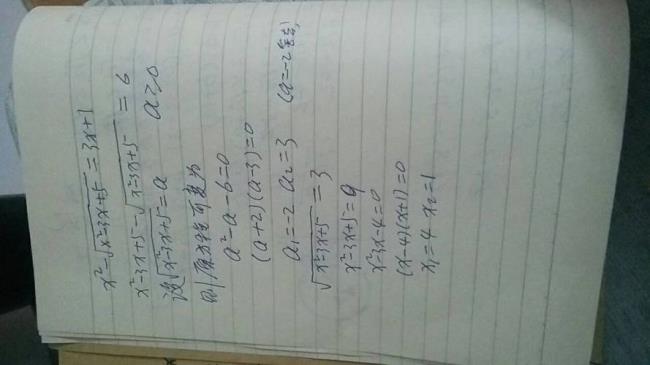 x²-√x²-3x+5=3x+1
x²-3x+5-√x²-3x+5=6
设√x²-3x+5=a a≥0
则原方程可变为
a²-a-6=0
(a+2)(a-3)=0
a₁=-2 a₂=3 (a=-2舍去)
√x²-3x+5=3
x²-3x+5=9
x²-3x-4=0
(x-4)(x+1)=0
x₁=4 x₂=1